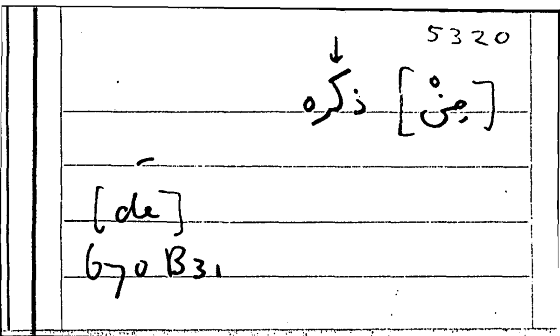 5320
↓
[من] ذكره
[de]
670 B31